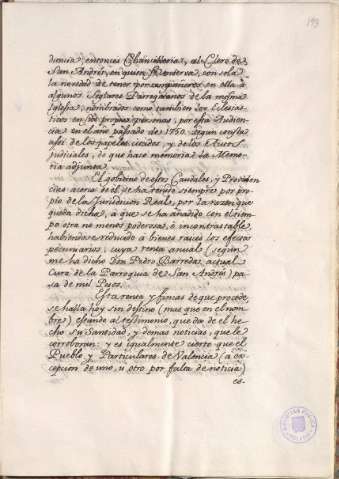 diencia, entonces Chancilleria, al Clero de
San Andrés, en quien se conserva, con sola
la novedad de tener por compañeros en ella à
algunos Seglares Parroquianos de la misma
Iglesia, nombrados como tambien los Eclesias-
ticos en sus propias personas, por esta Audien-
cia en el año pasado de 1750. segun consta
asi de los papeles citados, y de los Autos
judiciales, de que hace memoria la Memo-
ria adjunta.
El gobierno de estos Caudales, y Providen-
cias acerca de él, se ha tenido siempre por pro-
pio de la Jurisdicion Real, por la razon que
queda dicha, a que se ha añadido con el tiem-
po otra no menos poderosa, ò incontrastable,
habiendose reducido à bienes raices los efectos
pecuniarios, cuya renta anual (segun
me ha dicho Don Pedro Barreda, actual
Cura de la Parroquia de San Andrés) pa-
sa de mil Pesos.
Esta renta y fincas de que procede,
se halla hoy sin destino (mas que en el nom-
bre) estando al testimonio, que da de el he-
cho su Santidad, y demas noticias, que le
corroboran: y es igualmente cierto que el
Pueblo, y Particulares de Valencia (à ex-
cepcion de uno, u otro por falta de noticia)
es-